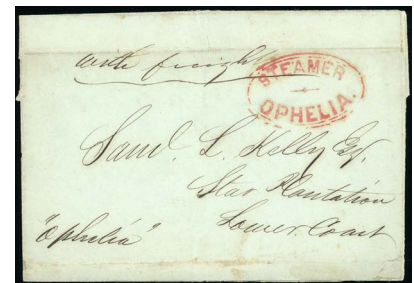 with freight
STEAMER
OPHELIA.
Saml. L. Kelly Esq.
Star Plantation
Lower Coast
"Ophelia"